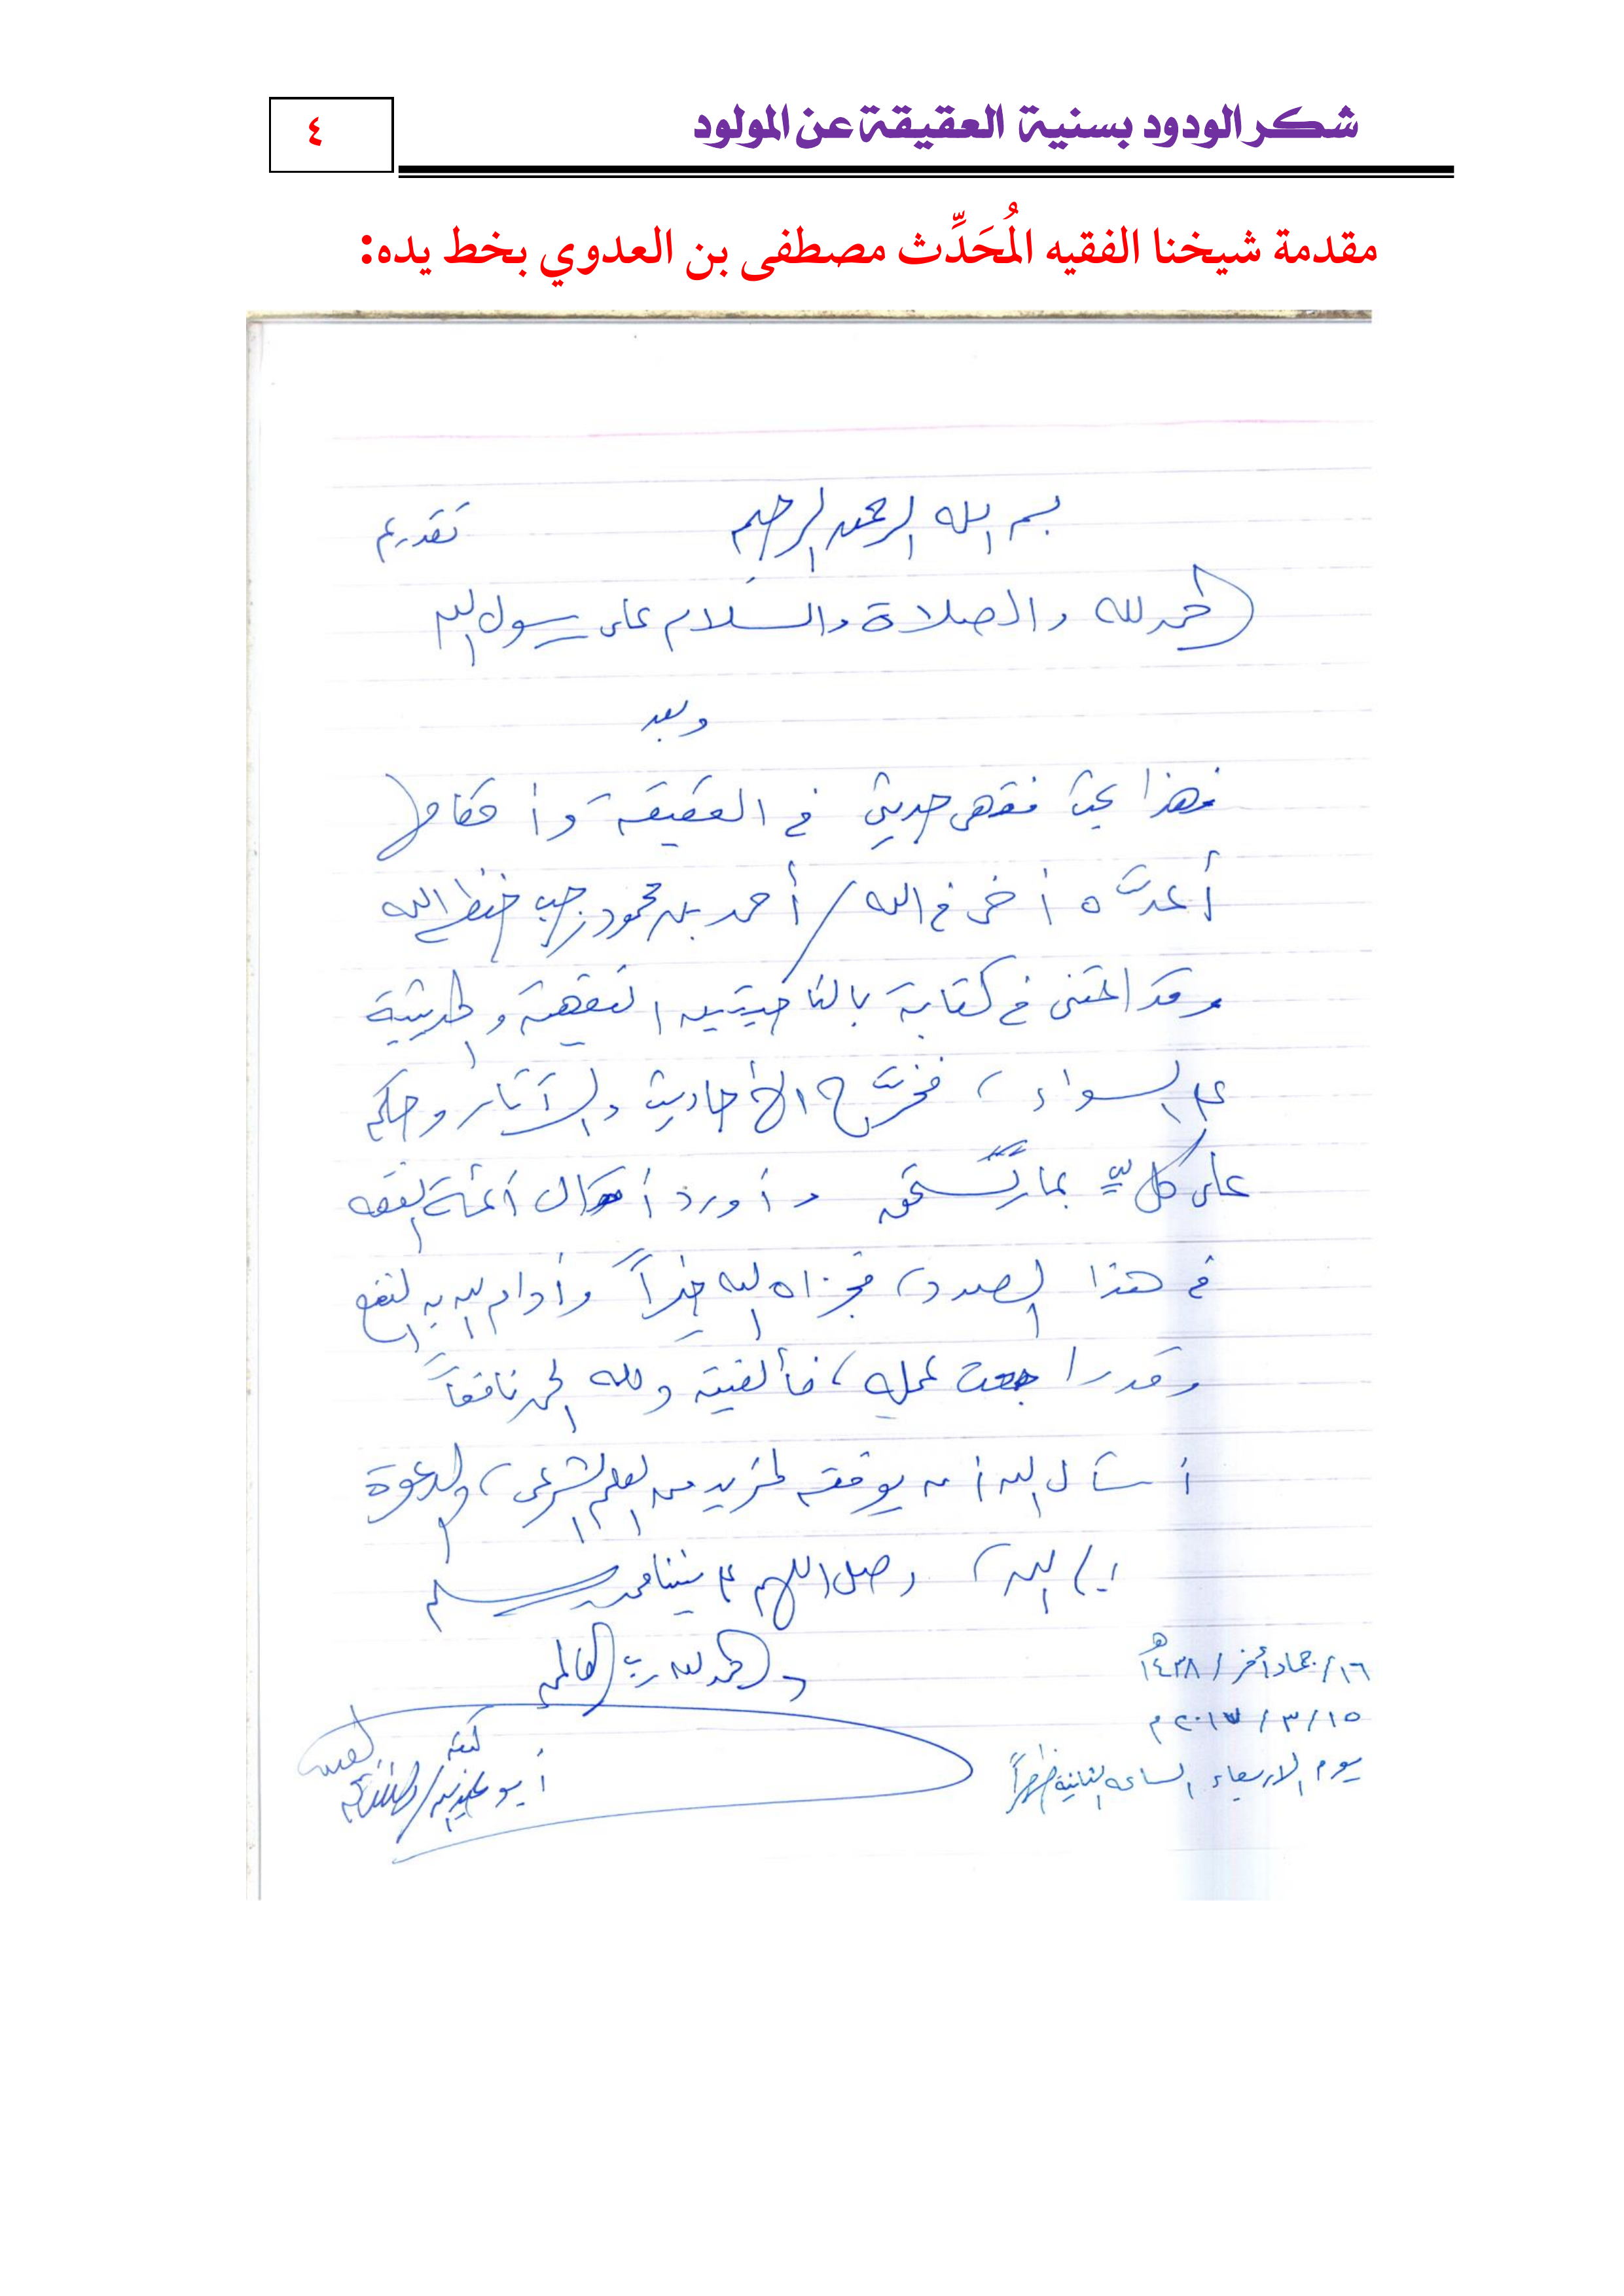 شكر الودود بسنية العقيقة عن المولود
٤
مقدمة شيخنا الفقيه المُحَدِّث مصطفى بن العدوي بخط يده:
بسم الله الرحمن الرحيم تقديم
الحمد لله والصلاة والسلام على رسول الله
وبعد
فهذا بحث فقهي حديثي في العقيقة وأحكامها
أعدَّه أخي في الله / أحمد بن محمود رجب حفظه الله
وقد اعتنى في كتابه بالناحيتين الفقهية والحديثية
على السواء، فخرَّج الأحاديث والآثار وحكم
على كلٍّ بما يستحق وأورد أقوال أئمة الفقه
في هذا الصدد، فجزاه الله خيراً وأدام الله به النفع
وقد راجعت عمله، فألفيته ولله الحمد نافعاً
أسأل الله أن يوفقه لمزيد من العلم الشرعي، والدعوة
إلى الله، وصل اللهم على نبينا محمد وسلم
والحمد لله رب العالمين
١٦/ جماد آخر / ١٤٣٨هـ
١٥/ ٣/ ٢٠١٧ م
يوم الاربعاء الساعه الثانية ظهراً
كتبه
أبو عبد الله / مصطفى بن العدوي